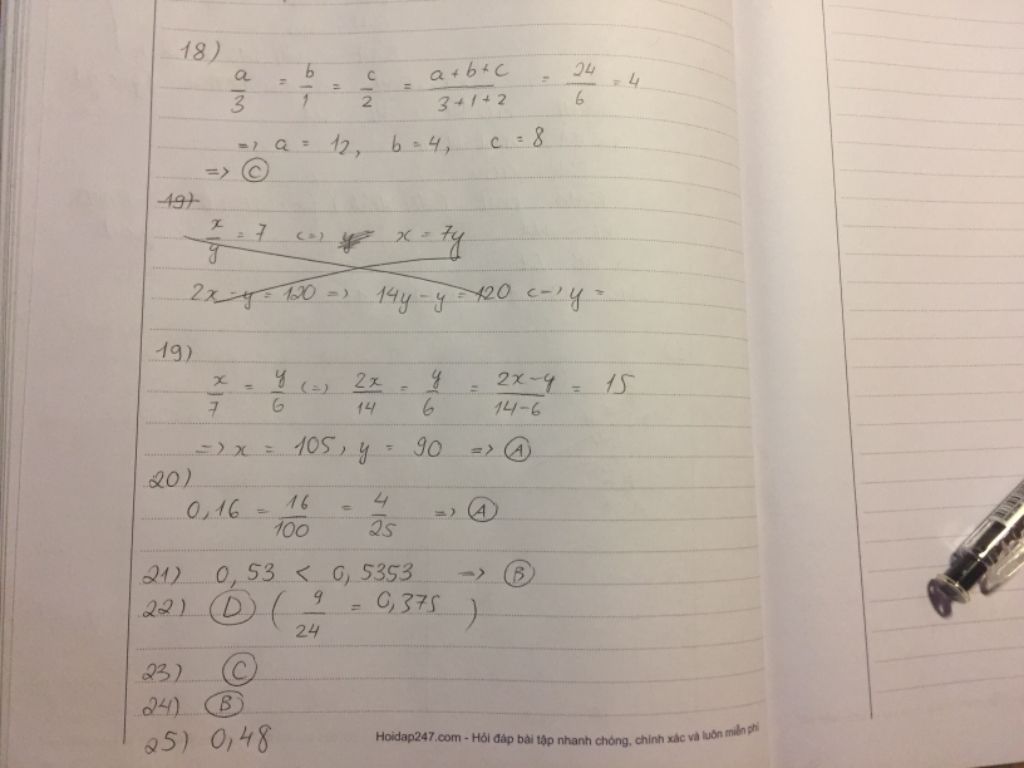 18)
a/3 = b/1 = c/2 = a+b+c/3+1+2 = 24/6 = 4
=> a = 12, b = 4, c = 8
=> C
19)
x/y = 7 <=> x = 7y
2x - y = 120 => 14y - y = 120 <=> y =
19)
x/7 = y/6 <=> 2x/14 = y/6 = 2x-y/14-6 = 15
=> x = 105, y = 90 => A
20)
0,16 = 16/100 = 4/25 => A
21) 0,53 < 0,5353 => B
22) D ( 9/24 = 0,375 )
23) C
24) B
25) 0,48
Hoidap247.com - Hỏi đáp bài tập nhanh chóng, chính xác và luôn miễn phí